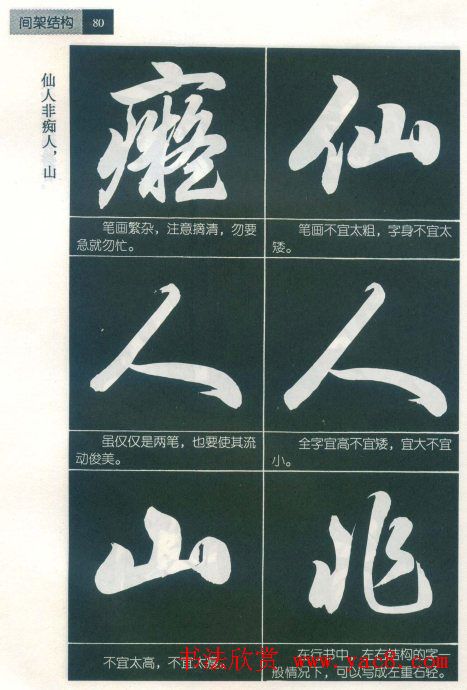 间架结构 80
仙人非痴人，山
仙
笔画不宜太粗，字身不宜太
矮。
人
全字宜高不宜矮，宜大不宜
小。
非
在行书中，左右结构的字一
般情况下，可以写成左重右轻。
癡
笔画繁杂，注意摘清，勿要
急就勿忙。
人
虽仅仅是两笔，也要使其流
动俊美。
山
不宜太高，不宜太
书法欣赏 www.yac8.com